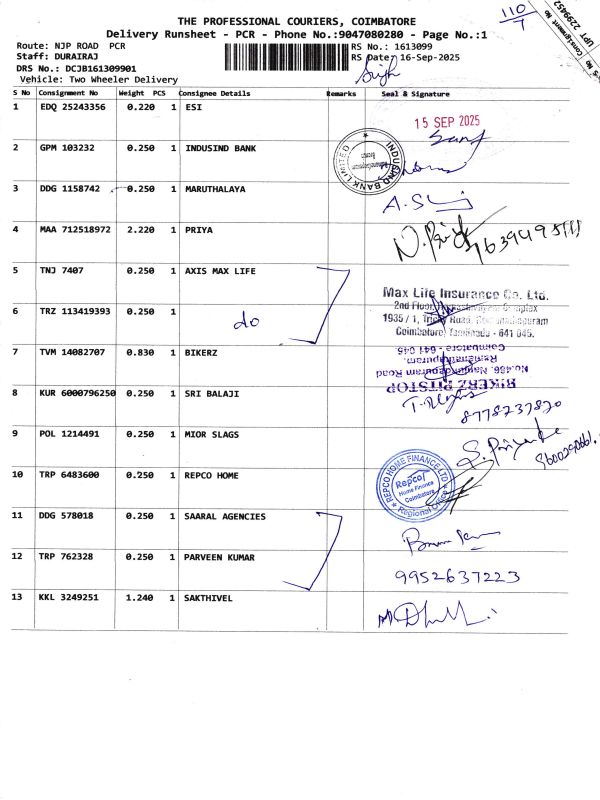 THE PROFESSIONAL COURIERS, COIMBATORE
Delivery Runsheet - PCR - Phone No.:9047080280 - Page No.:1
110/7
UPT 2299452
Consignment No
S No
Route: NJP ROAD PCR
RS No.: 1613099
Staff: DURAIRAJ
RS Date: 16-Sep-2025
DRS No.: DCJB161309901
Vehicle: Two Wheeler Delivery
S No Consignment No Weight PCS Consignee Details Remarks Seal & Signature
1 EDQ 25243356 0.220 1 ESI
15 SEP 2025
2 GPM 103232 0.250 1 INDUSIND BANK
INDUSIND BANK LIMITED
3 DDG 1158742 0.250 1 MARUTHALAYA
4 MAA 712518972 2.220 1 PRIYA
5 TNJ 7407 0.250 1 AXIS MAX LIFE
Max Life Insurance Co. Ltd.
2nd Floor, Complex
1935 / 1, Trichy Road, Ramanathapuram
Coimbatore, Tamilnadu - 641 045.
6 TRZ 113419393 0.250 1
do
7 TVM 14082707 0.830 1 BIKERZ
BIKERZ PITSTOP
No.456, Nanjundapuram Road
Ramanathapuram,
Coimbatore - 641 045
8 KUR 6000796250 0.250 1 SRI BALAJI
8778737870
9 POL 1214491 0.250 1 MIOR SLAGS
10 TRP 6483600 0.250 1 REPCO HOME
REPCO HOME FINANCE LTD
Repco
Home Finance
Coimbatore
Regional Office
11 DDG 578018 0.250 1 SAARAL AGENCIES
12 TRP 762328 0.250 1 PARVEEN KUMAR
9952637223
13 KKL 3249251 1.240 1 SAKTHIVEL